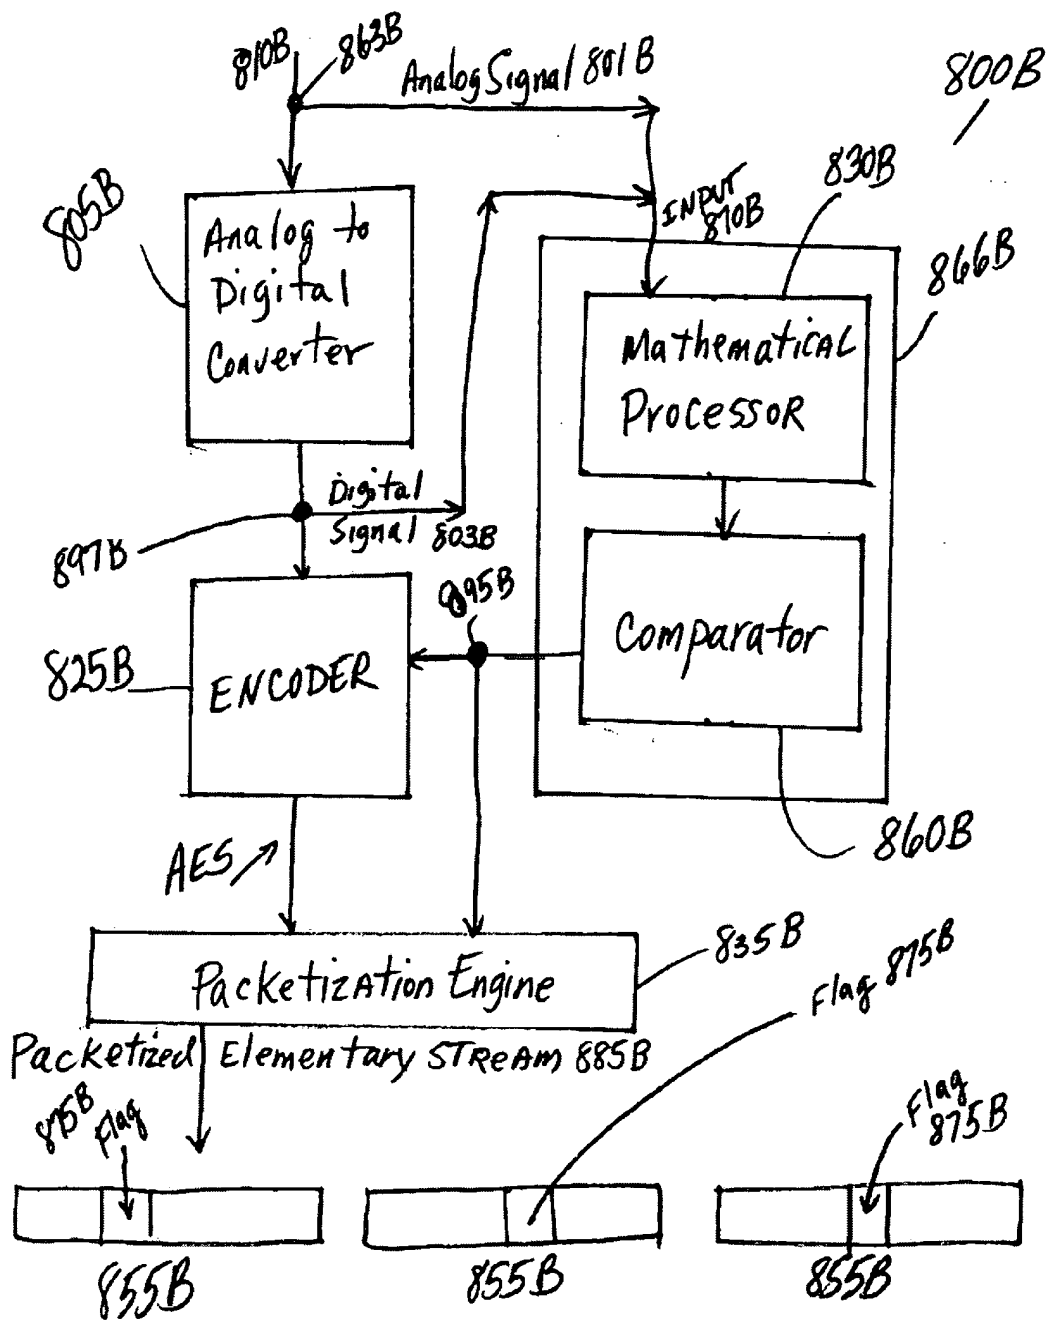 810B
863B
Analog Signal 801B
800B
805B
Analog to
Digital
Converter
INPUT
870B
830B
866B
Mathematical
Processor
Digital
Signal 803B
897B
895B
825B
ENCODER
Comparator
860B
AES
Packetization Engine
835B
Flag 875B
Packetized Elementary Stream 885B
875B
Flag
Flag
875B
855B
855B
855B